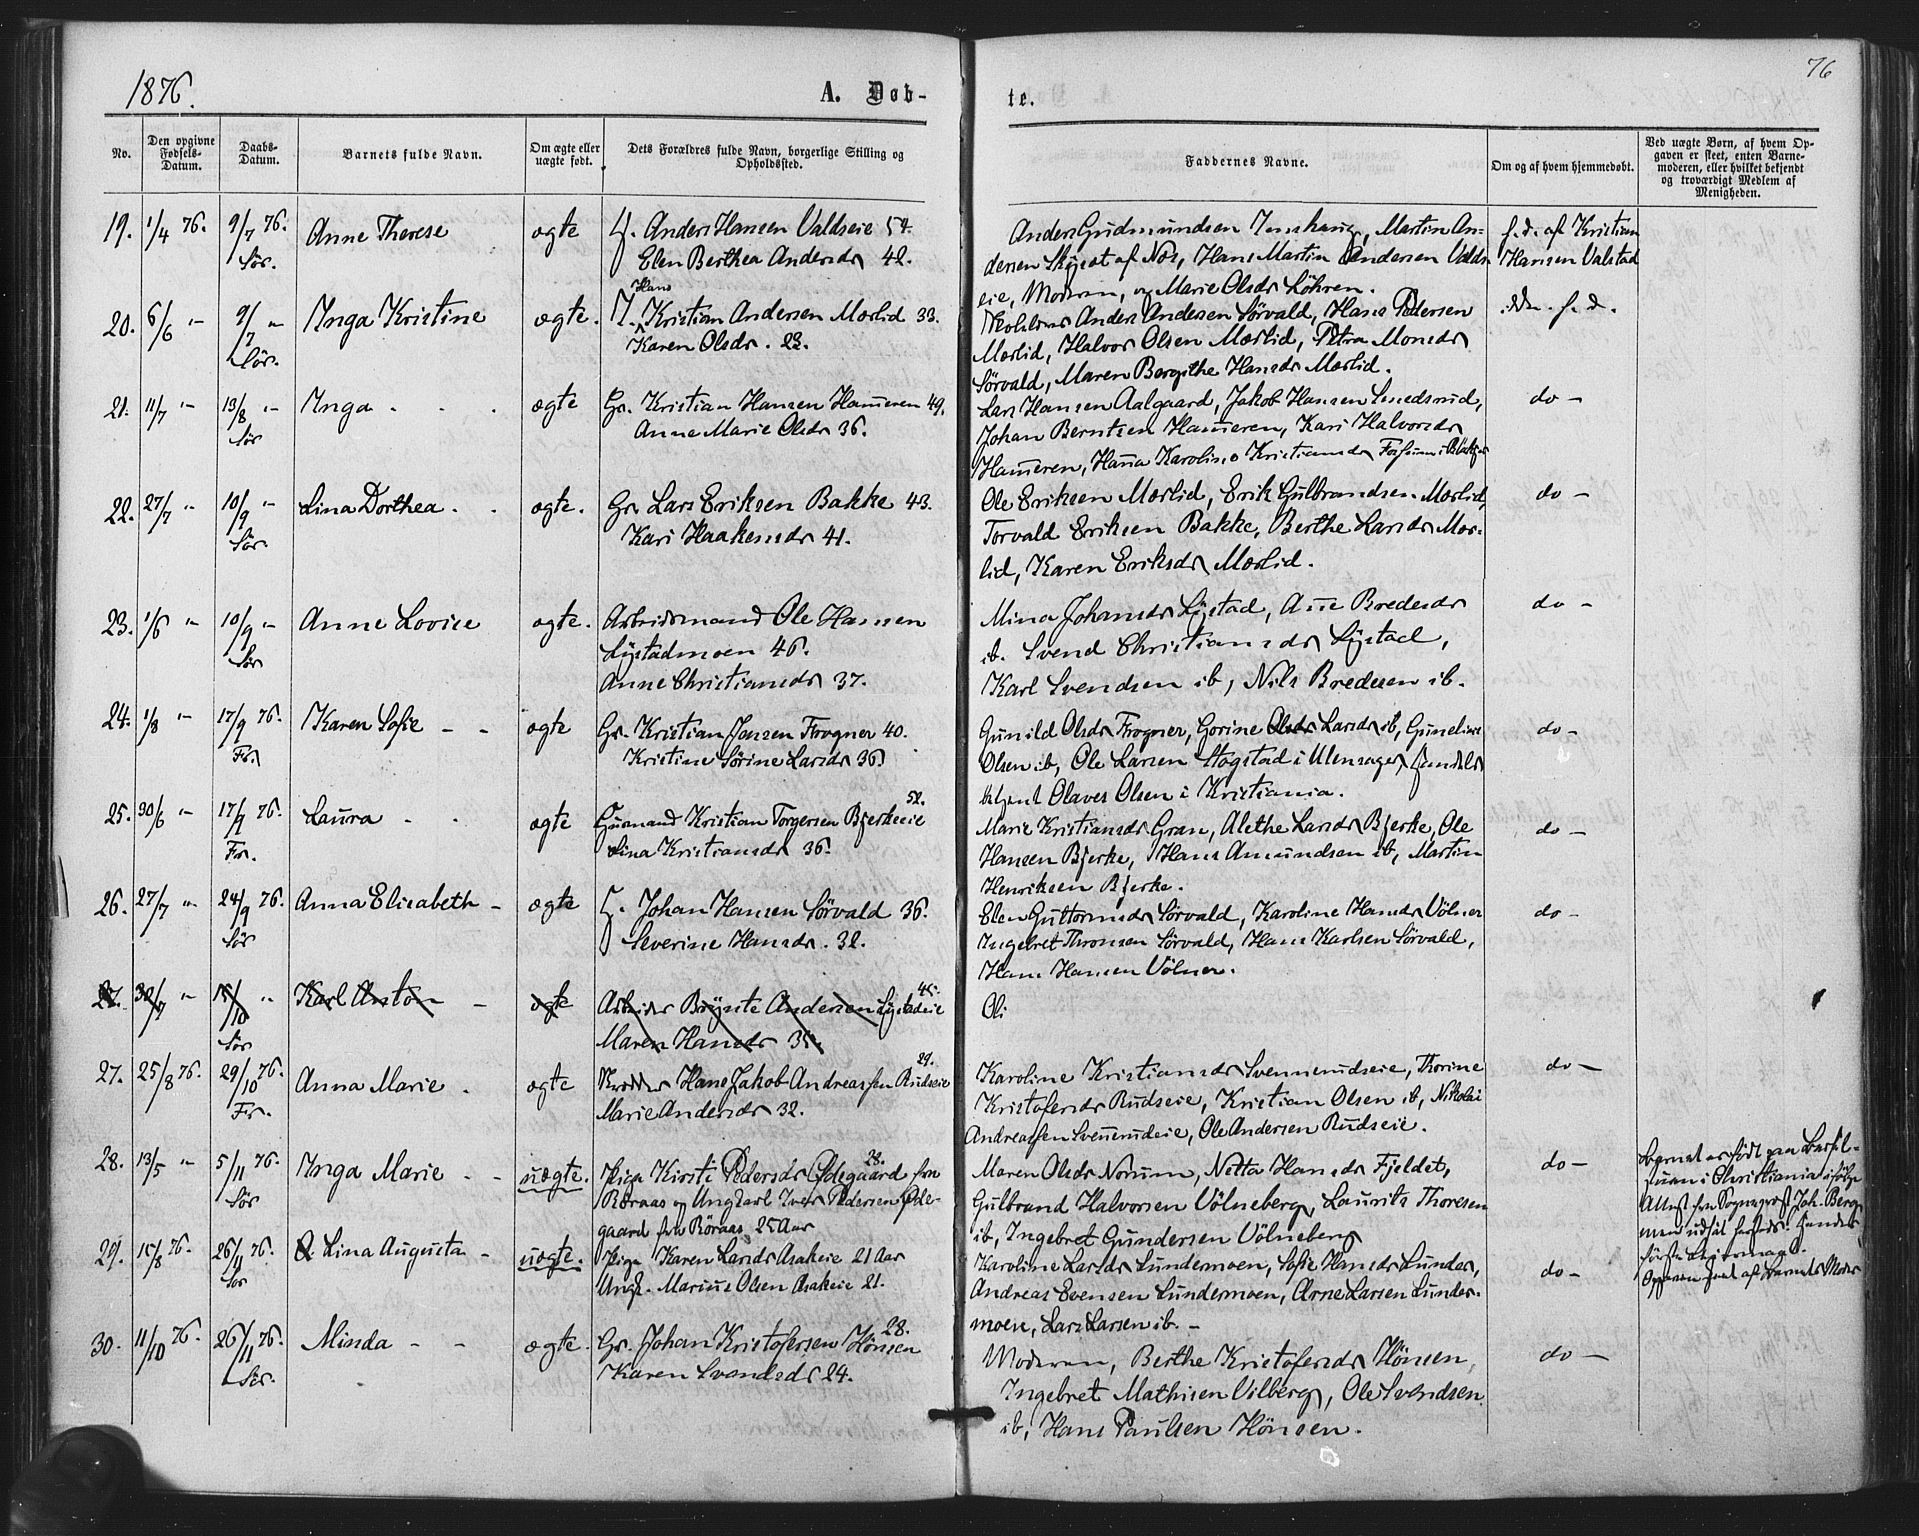 1876.
A. Døb-
te.
76
No.
Den opgivne
Fødsels-
Datum.
Daabs-
Datum.
Barnets fulde Navn.
Om ægte eller
uægte født.
Dets Forældres fulde Navn, borgerlige Stilling og
Opholdssted.
Faddernes Navne.
Om og af hvem hjemmedøbt.
Ved uægte Børn, af hvem Op-
gaven er skeet, enten Barne-
moderen, eller hvilket bekjendt
og troværdigt Medlem af
Menigheden.
19. 1/4 76. 9/7 76. Sör. Anne Therese ægte
Anders Hansen Valdseie 54.
Elen Berthea Andersdr 42.
Anders Gudmundsen, Martin An-
dersen af Næs, Hans Martin Andersen Valds-
eie, Moderen, og Marie Olsdr Löhren.
f. d. af Kristian
Hansen Valstad
20. 6/6 " 9/7 " Sör. Inga Kristine ægte.
Hans
Kristian Andersen Mærlid 33.
Karen Olsdr. 22.
Anders Andersen Sörvald, Hans Pedersen
Mærlid, Halvor Olsen Mærlid, Petra Monsdr
Sörvald, Maren Bergithe Hansdr Mærlid.
f. d.
21. 11/7 " 13/8 " Sör Inga ægte
Gr. Kristian Hansen Hameren 49.
Anne Marie Olsdr 36.
Lars Hansen Aalgaard, Jakob Hansen Smedsrud,
Johan Berntsen Hameren, Kari Halvorsdr
Hameren, Hana Karolis. Kristiansdr
do -
22. 27/7 " 10/9 " Sör. Lina Dorthea. ægte.
Gr. Lars Eriksen Bakke 43.
Kari Haakensdr 41.
Ole Eriksen Mærlid, Erik Gulbrandsen Mærlid,
Torvald Eriksen Bakke, Berthe Larsdr Mær-
lid, Karen Eriksdr Mærlid.
do -
23. 1/6 " 10/9 " Sör Anne Lovise ægte.
Arbeidsmand Ole Hansen
Lystadmoen 46.
Anne Christiansdr 37.
Mina Johansdr Lystad, Ane Bredesdr
ib. Svend Christiansdr Lystad,
Karl Svendsen ib, Nils Bredesen ib.
do -
24. 1/8 " 17/9 76. Fr. Karen Sofie - - ægte
Gr. Kristian Jensen Frogner 40.
Kristine Sörine Larsdr 36
Gunild Olsdr Frogner, Gorine Olsdr Larsdr ib, Gunelius
Olsen ib, Ole Larsen Hogstad i Ulensager, Handels
betjent Olaves Olsen i Kristiania.
do -
25. 30/6 " 17/9 76. Fr. Laura ægte
52.
Husmand Kristian Torgersen Bjerkeeie
Lina Kristiansdr 36.
Marie Kristiansdr Gran, Alethe Larsdr Bjerke, Ole
Hansen Bjerke, Hans Amundsen ib, Martin
Henriksen Bjerke.
do -
26. 27/7 " 24/9 76. Sör Anna Elisabeth - ægte
Johan Hansen Sörvald 36.
Severine Hansdr. 32.
Elen Guttormsdr Sörvald, Karoline Hansdr Völner
Ingebret Thronsen Sörvald, Hans Karlsen Sörvald,
Hans Hansen Völner.
do -
27. 30/7 " 15/10 " Sör Karl Anton - ægte
45.
Arbeider Brynte Andersen Lystadeie
Maren Hansdr 35.
Oli
27. 25/8 76. 29/10 76. Fr. Anna Marie . ægte
29.
Hans Jakob Andreassen Rudseie
Marie Andersdr 32.
Karoline Kristiansdr Svennerudseie, Thorine
Kristofersdr Rudseie, Kristian Olsen ib, Nikolai
Andreassen Svenerudeie, Ole Andersen Rudseie.
do -
28. 13/5 " 5/11 76. Sör Inga Marie - - uægte.
28.
Pige Kirsti Pedersdr Ödegaard fra
Röraas og Ungkarl Iver Pedersen Öde-
gaard fra Röraas 25 Aar
Maren Olsdr Norum, Netta Hansdr Fjeldet,
Gulbrand Halvorsen Völneberg, Laurits Thoresen
ib, Ingebret Gundersen Völneberg
do -
Barnet er födt paa Barsel-
stuen i Christiania ifölge
Attest fra Sogneprest Joh. Berg
men udsat . Hendes
förste Leiermaal.
29. 15/8 76. 26/11 76. Sör Lina Augusta - uægte.
Pige Karen Larsdr Asakeie 21 Aar
Ungk. Marius Olsen Asakeie 21.
Karoline Larsdr Lundermoen, Sofie Hansdr Lunder,
Andreas Evensen Lundermoen, Arne Larsen Lunder-
moen, Lars Larsen ib. -
do -
Opgaven skeet af Barnets Moder
30. 11/10 76. 26/11 76. Sör. Minda - - ægte.
28.
Gr. Johan Kristofersen Hönsen
Karen Svendsdr 24.
Moderen, Berthe Kristofersdr Hönsen,
Ingebret Mathisen Vilberg, Ole Svendsen
ib, Hans Paulsen Hönsen.
do -